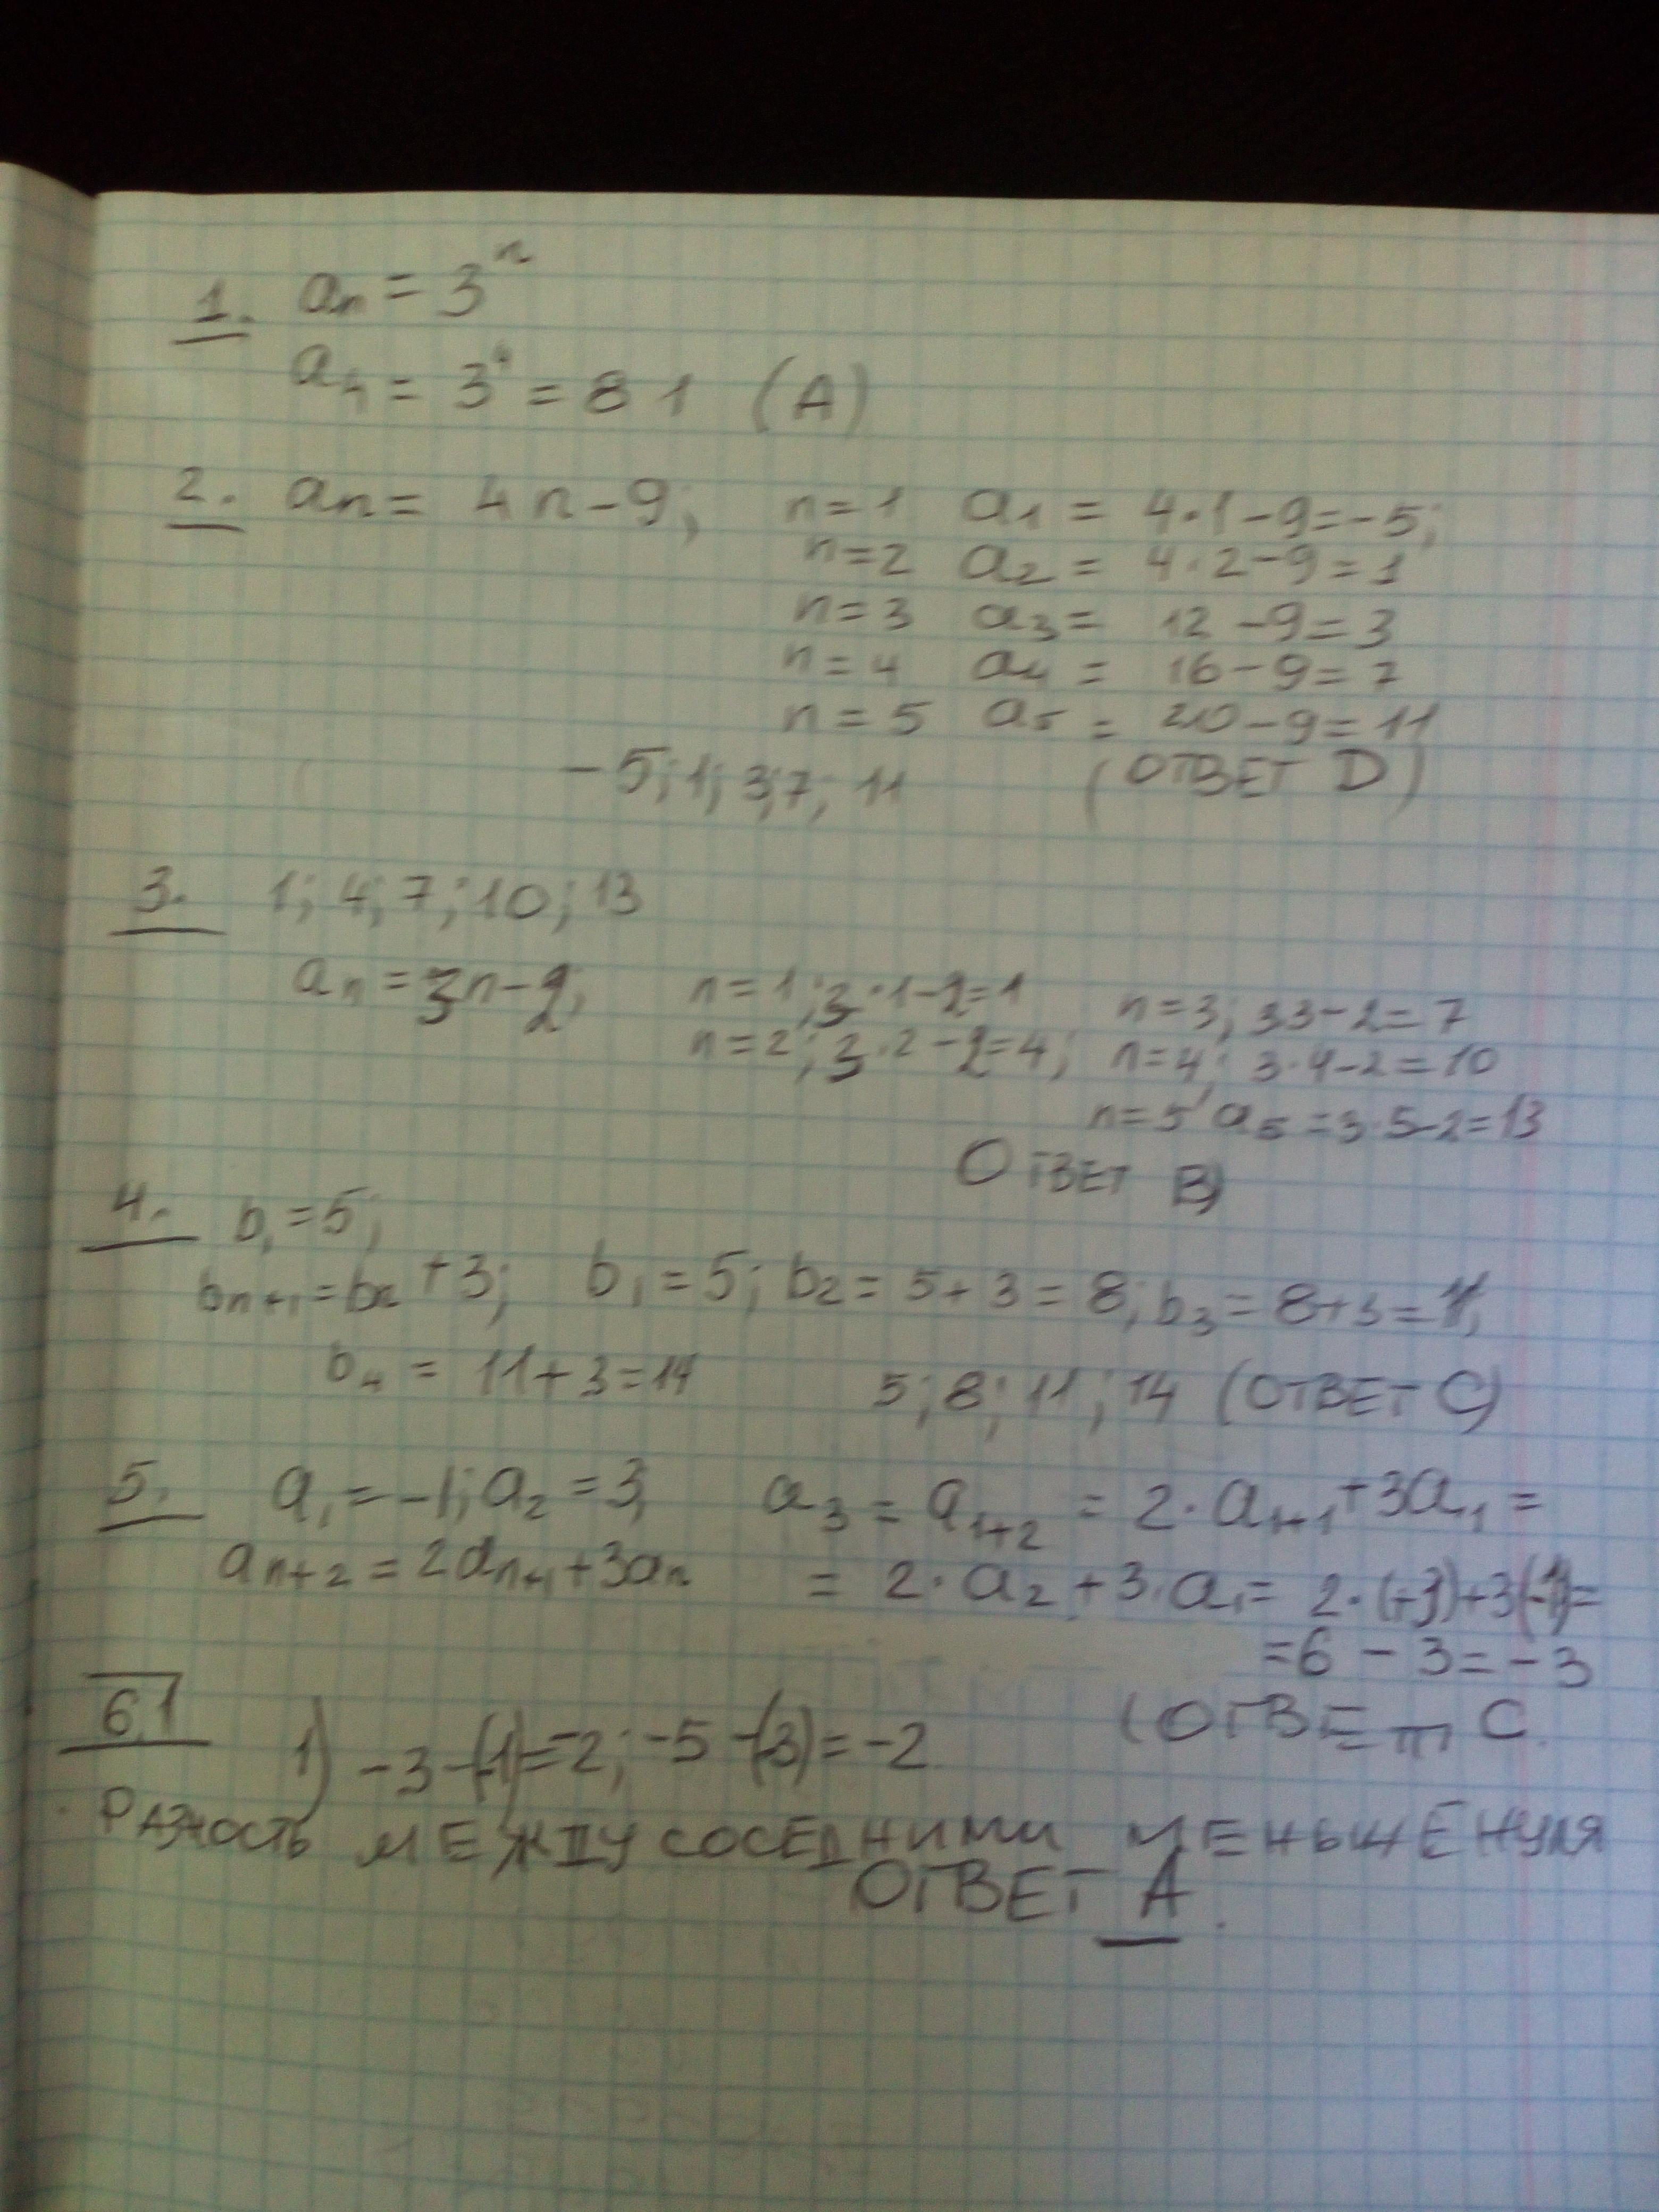 1. aₙ = 3ⁿ
a₄ = 3⁴ = 81 (А)
2. aₙ = 4n-9; n=1 a₁ = 4·1-9=-5;
n=2 a₂ = 4·2-9=1
n=3 a₃ = 12-9=3
n=4 a₄ = 16-9=7
n=5 a₅ = 20-9=11
-5; 1; 3; 7; 11 (ОТВЕТ D)
3. 1; 4; 7; 10; 13
aₙ = 3n-2; n=1; 3·1-2=1 n=3; 3·3-2=7
n=2; 3·2-2=4; n=4; 3·4-2=10
n=5 a₅=3·5-2=13
ОТВЕТ В)
4. b₁=5;
bₙ₊₁=bₙ+3; b₁=5; b₂=5+3=8; b₃=8+3=11;
b₄ = 11+3=14 5; 8; 11; 14 (ОТВЕТ С)
5. a₁=-1; a₂=3; a₃ = a₁₊₂ = 2·a₁₊₁+3a₁ =
aₙ₊₂=2aₙ₊₁+3aₙ = 2·a₂+3·a₁= 2·(+3)+3(-1)=
=6-3=-3
(ОТВЕТ С.
6.1 1) -3-(-1)=-2; -5-(-3)=-2
РАЗНОСТЬ МЕЖДУ СОСЕДНИМИ МЕНЬШЕ НУЛЯ
ОТВЕТ А.